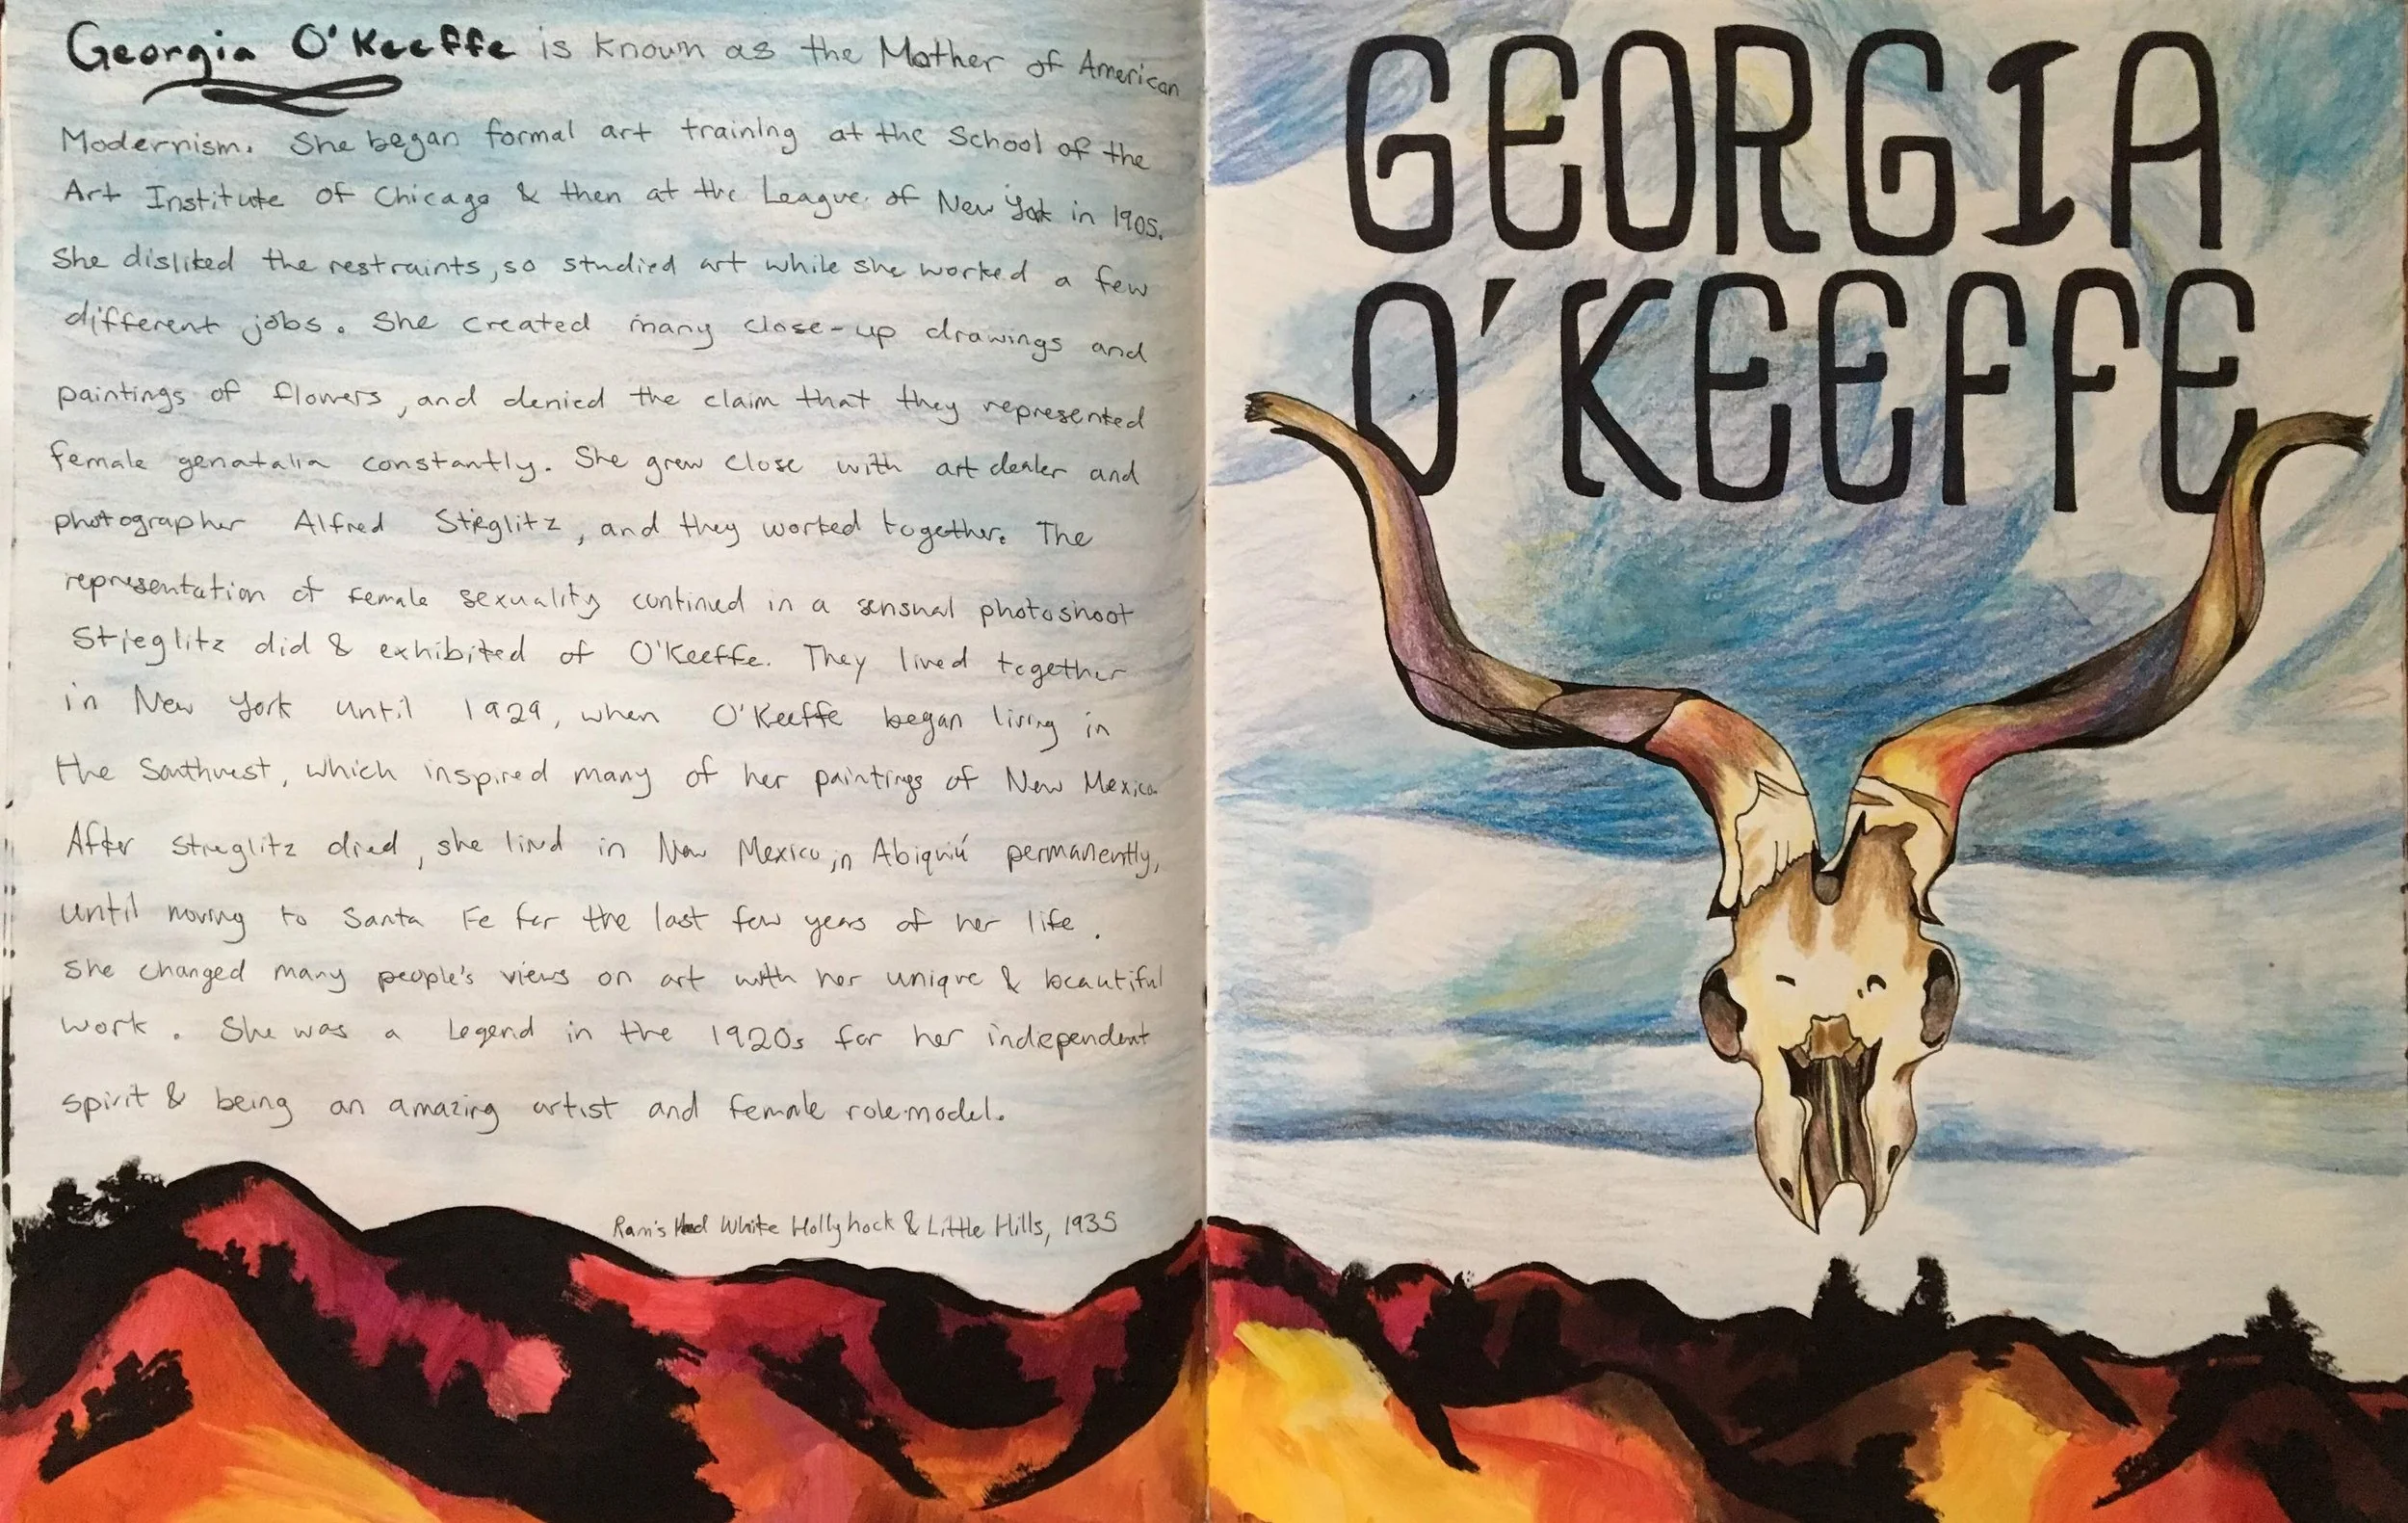 Georgia O'Keeffe is known as the Mother of American
Modernism. She began formal art training at the School of the
Art Institute of Chicago & then at the League of New York in 1905.
She disliked the restraints, so studied art while she worked a few
different jobs. She created many close-up drawings and
paintings of flowers, and denied the claim that they represented
female genatalia constantly. She grew close with art dealer and
photographer Alfred Stieglitz, and they worked together. The
representation of female sexuality continued in a sensual photoshoot
Stieglitz did & exhibited of O'Keeffe. They lived together
in New York until 1929, when O'Keeffe began living in
the Southwest, which inspired many of her paintings of New Mexico.
After Stieglitz died, she lived in New Mexico, in Abiquiú permanently,
until moving to Santa Fe for the last few years of her life.
She changed many people's views on art with her unique & beautiful
work. She was a legend in the 1920s for her independent
spirit & being an amazing artist and female role model.
Ram's Head White Hollyhock & Little Hills, 1935
GEORGIA
O'KEEFFE